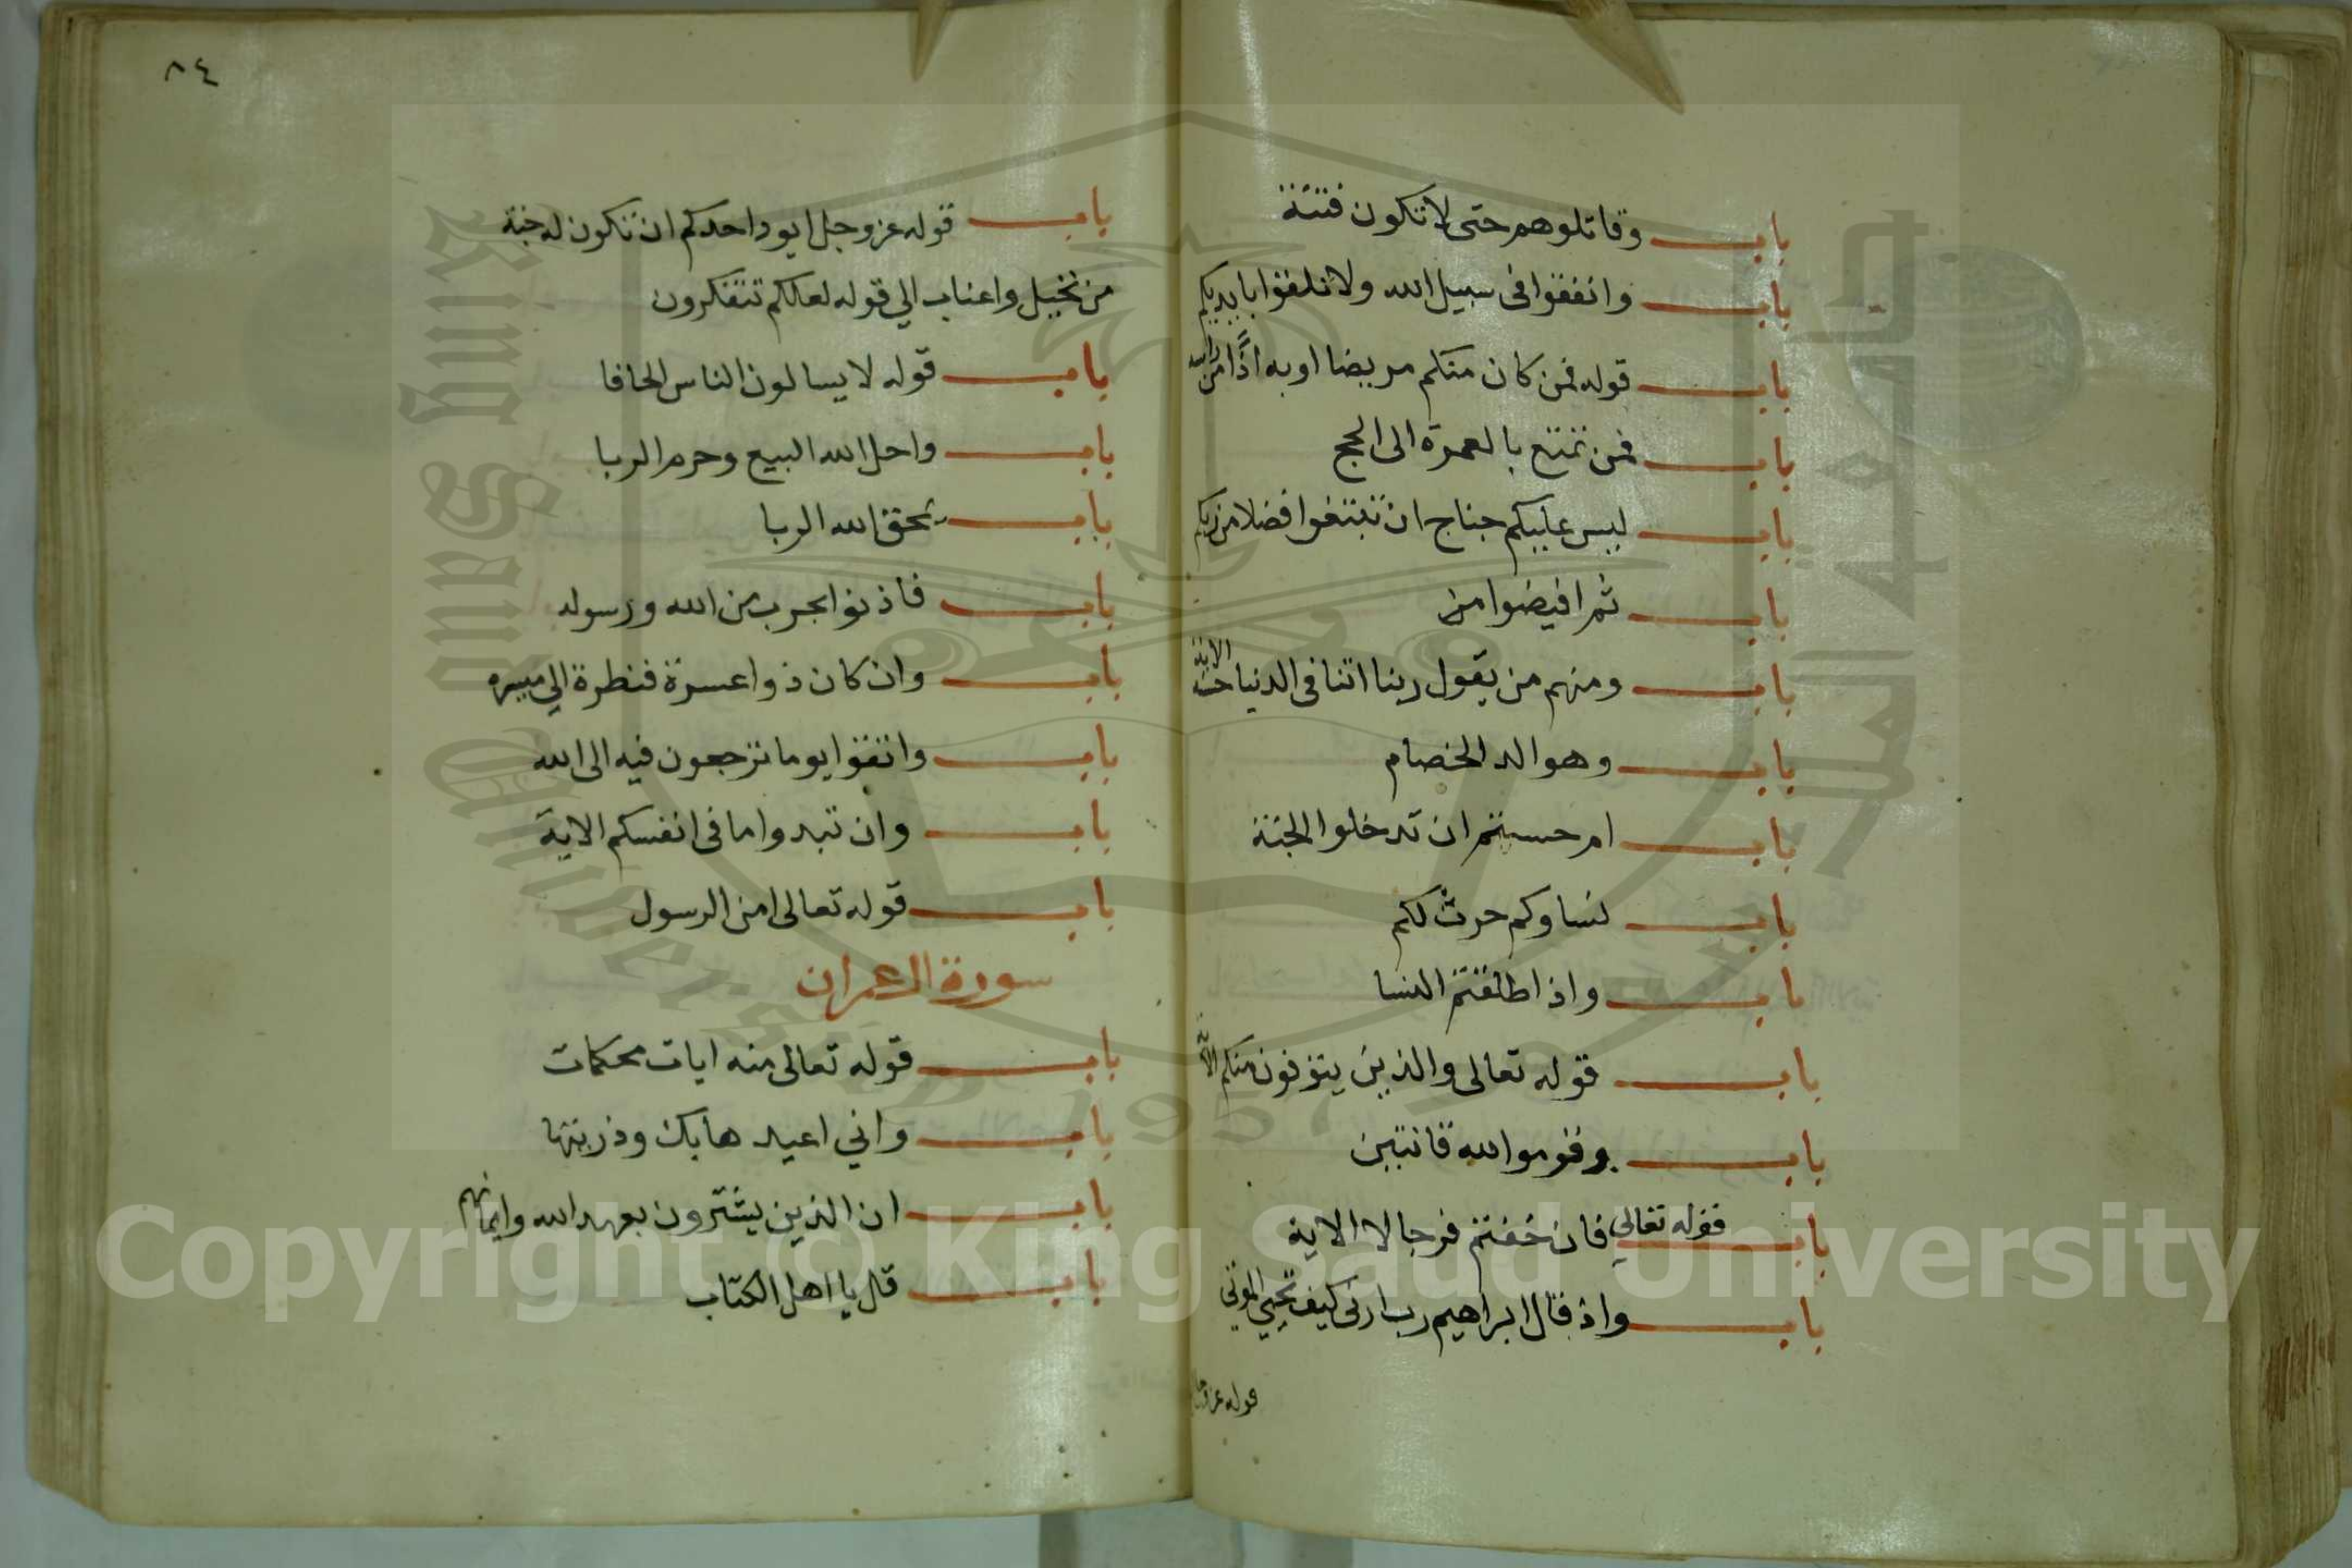 باب وقاتلوهم حتى لا تكون فتنة
باب وانفقوا في سبيل الله ولا تلقوا بايديكم
باب قوله فمن كان منكم مريضا او به اذًا من راسه
باب فمن تمتع بالعمرة الى الحج
باب ليس عليكم جناح ان تبتغوا فضلا من ربكم
باب ثم افيضوا من
باب ومنهم من يقول ربنا اتنا في الدنيا حسنة الاية
باب وهو الد الخصام
باب ام حسبتم ان تدخلوا الجنة
باب نساوكم حرث لكم
باب واذا طلقتم النسا
باب قوله تعالى والذين يتوفون منكم الاية
باب وقوموا لله قانتين
باب قوله تعالي فان خفتم فرجالا الاية
باب واذ قال ابراهيم رب ارنى كيف تحيي الموتي
قوله عز
٨٤
باب قوله عز وجل ايود احدكم ان تكون له جنة
من نخيل واعناب الي قوله لعلكم تتفكرون
باب قوله لا يسالون الناس الحافا
باب واحل الله البيع وحرم الربا
باب يمحق الله الربا
باب فاذنوا بحرب من الله ورسوله
باب وان كان ذوا عسرة فنظرة الي ميسره
باب واتقوا يوما ترجعون فيه الى الله
باب وان تبدوا ما في انفسكم الاية
باب قوله تعالى امن الرسول
سورة ال عمران
باب قوله تعالى منه ايات محكمات
باب واني اعيدها بك وذريتها
باب ان الذين يشترون بعهد الله وايمانهم
باب قل يا اهل الكتاب
King Saud University
1957
Copyright © King Saud University